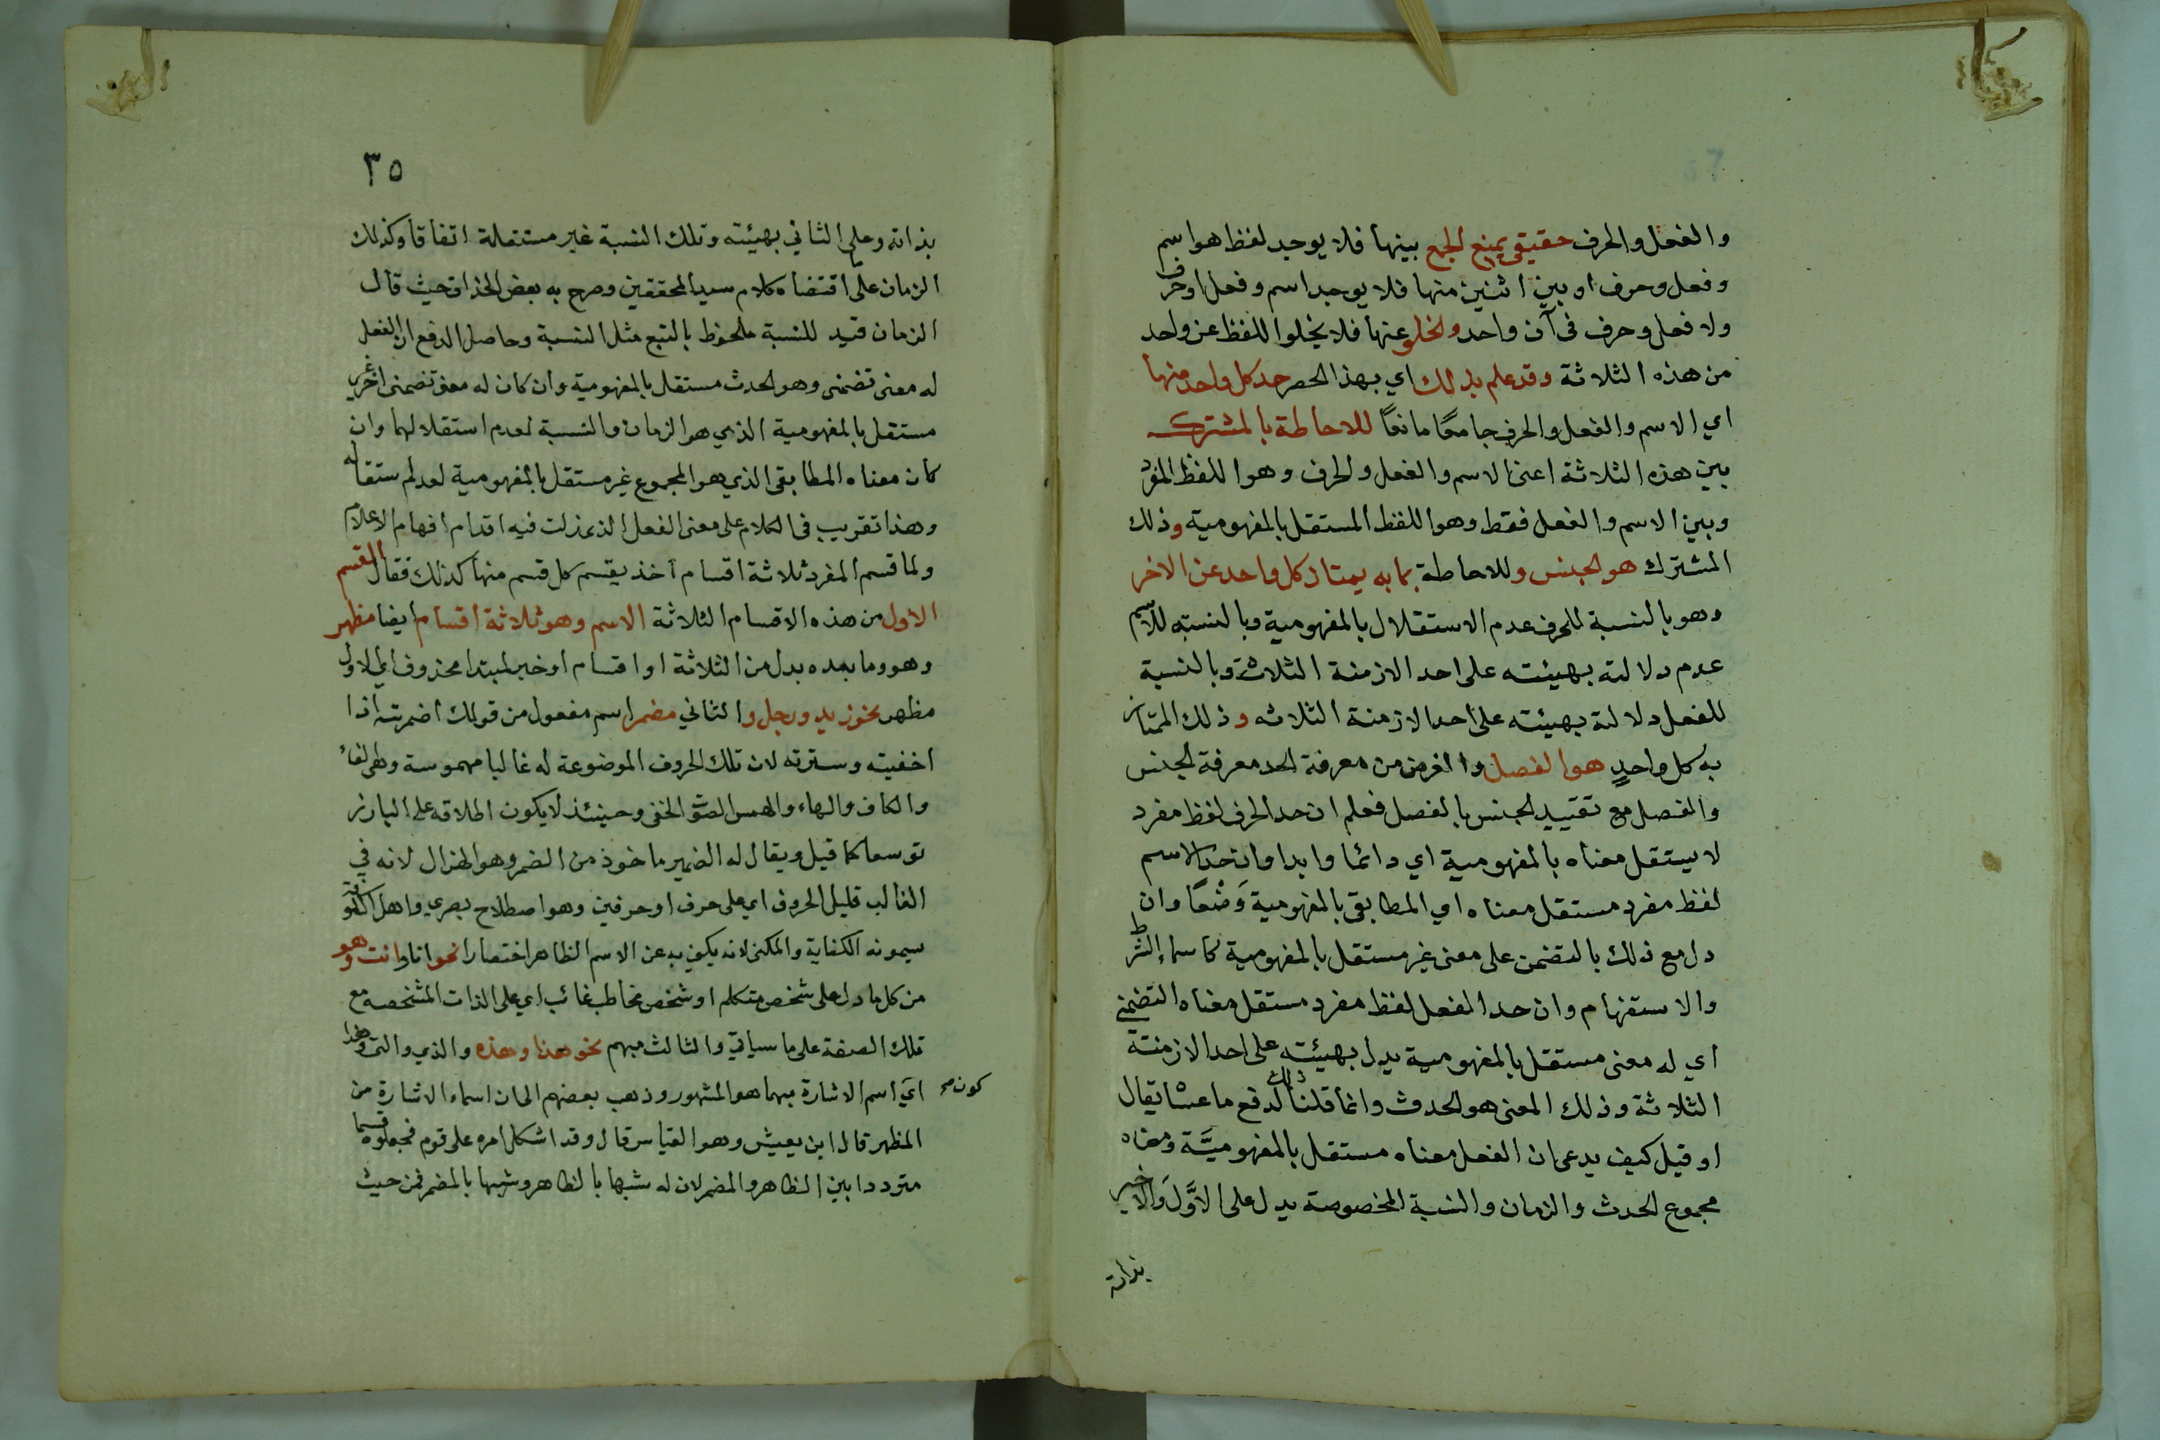 والفعل والحرف حقيقي يمنع الجمع بينها فلا يوجد لفظ هو اسم
وفعل وحرف او بين اثنين منها فلا يوجد اسم وفعل او حرف
ولا فعل وحرف في آن واحد والخلو عنها فلا يخلوا اللفظ عن واحد
من هذه الثلاثة وقد علم بذلك اي بهذا الحصر حد كل واحد منها
اي الاسم والفعل والحرف جامعًا مانعًا للاحاطة بالمشترك
بين هذه الثلاثة اعني الاسم والفعل والحرف وهو اللفظ المفرد
وبين الاسم والفعل فقط وهو اللفظ المستقل بالمفهومية وذلك
المشترك هو الجنس وللاحاطة بما به يمتاز كل واحد عن الاخر
وهو بالنسبة للحرف عدم الاستقلال بالمفهومية وبالنسبة للاسم
عدم دلالته بهيئته على احد الازمنة الثلاثة وبالنسبة
للفعل دلالته بهيئته على احد الازمنة الثلاثه وذلك الممتاز
به كل واحدٍ هو الفصل والغرض من معرفة الحد معرفة الجنس
والفصل مع تقييد الجنس بالفصل فعلم ان حد الحرف لفظ مفرد
لا يستقل معناه بالمفهومية اي دائما وابدا وان حد الاسم
لفظ مفرد مستقل معناه اي المطابقي بالمفهومية وَضْعًا وان
دل مع ذلك بالتضمن على معنى غير مستقل بالمفهومية كاسماء الشرط
والاستفهام وان حد الفعل لفظ مفرد مستقل معناه التضمني
اي له معنى مستقل بالمفهومية يدل بهيئته على احد الازمنة
الثلاثة وذلك المعنى هو الحدث وانما قلنا ذلك لدفع ما عسا يقال
او قيل كيف يدعى ان الفعل معناه مستقل بالمفهوميَّة ومعناه
مجموع الحدث والزمان والنسبة المخصوصة يدل على الاوَّل والاخير
بذاته
٣٥
بذاته وعلى الثاني بهيئته وتلك النسبة غير مستقلة اتفاقا وكذلك
الزمان على ما اقتضاه كلام سيد المحققين وصرح به بعض الحذاق حيث قال
الزمان قيد للنسبة ملحوظ بالتبع مثل النسبة وحاصل الدفع ان الفعل
له معنى تضمني وهو الحدث مستقل بالمفهومية وان كان له معنى تضمني اخر غير
مستقل بالمفهومية الذي هو الزمان والنسبة لعدم استقلالهما وان
كان معناه المطابقي الذي هو المجموع غير مستقل بالمفهومية لعدم استقلاله
وهذا تقريب في الكلام على معنى الفعل الذي زلت فيه اقدام افهام الاعلام
ولما قسم المفرد ثلاثة اقسام اخذ يقسم كل قسم منها كذلك فقال القسم
الاول من هذه الاقسام الثلاثة الاسم وهو ثلاثة اقسام ايضا مظهر
وهو وما بعده بدل من الثلاثة او اقسام او خبر لمبتدا محذوف اي الاول
مظهر نحو زيد ورجل والثاني مضمر اسم مفعول من قولك اضمرته اذا
اخفيته وسترته لان تلك الحروف الموضوعة له غالبا مهموسة وهي التاء
والكاف والهاء والهمس الصوت الخفي وحينئذ لا يكون اطلاقه على البارز
توسعا كما قيل ويقال له الضمير ماخوذ من الضمر وهو الهزال لانه في
الغالب قليل الحروف اي على حرف او حرفين وهو اصطلاح بصري واهل الكوفة
سيمونه الكناية والمكنى لانه يكني به عن الاسم الظاهر اختصارا نحو انا وانت وهو
من كل ما دل على شخص متكلم او شخص مخاطب غائب اي على الذات المشخصه مع
تلك الصفة على ما سياتي والثالث مبهم نحو هذا وهذه والذي والتي وهذا
اي اسم الاشارة مبهما هو المشهور وذهب بعضهم الى ان اسماء الاشارة من
كون صح
المظهر قال ابن يعيش وهو القياس قال وقد اشكل امره على قوم فجعلوه قسما
مترددا بين الظاهر والمضمر لان له شبها بالظاهر وشبها بالمضمر فمن حيث